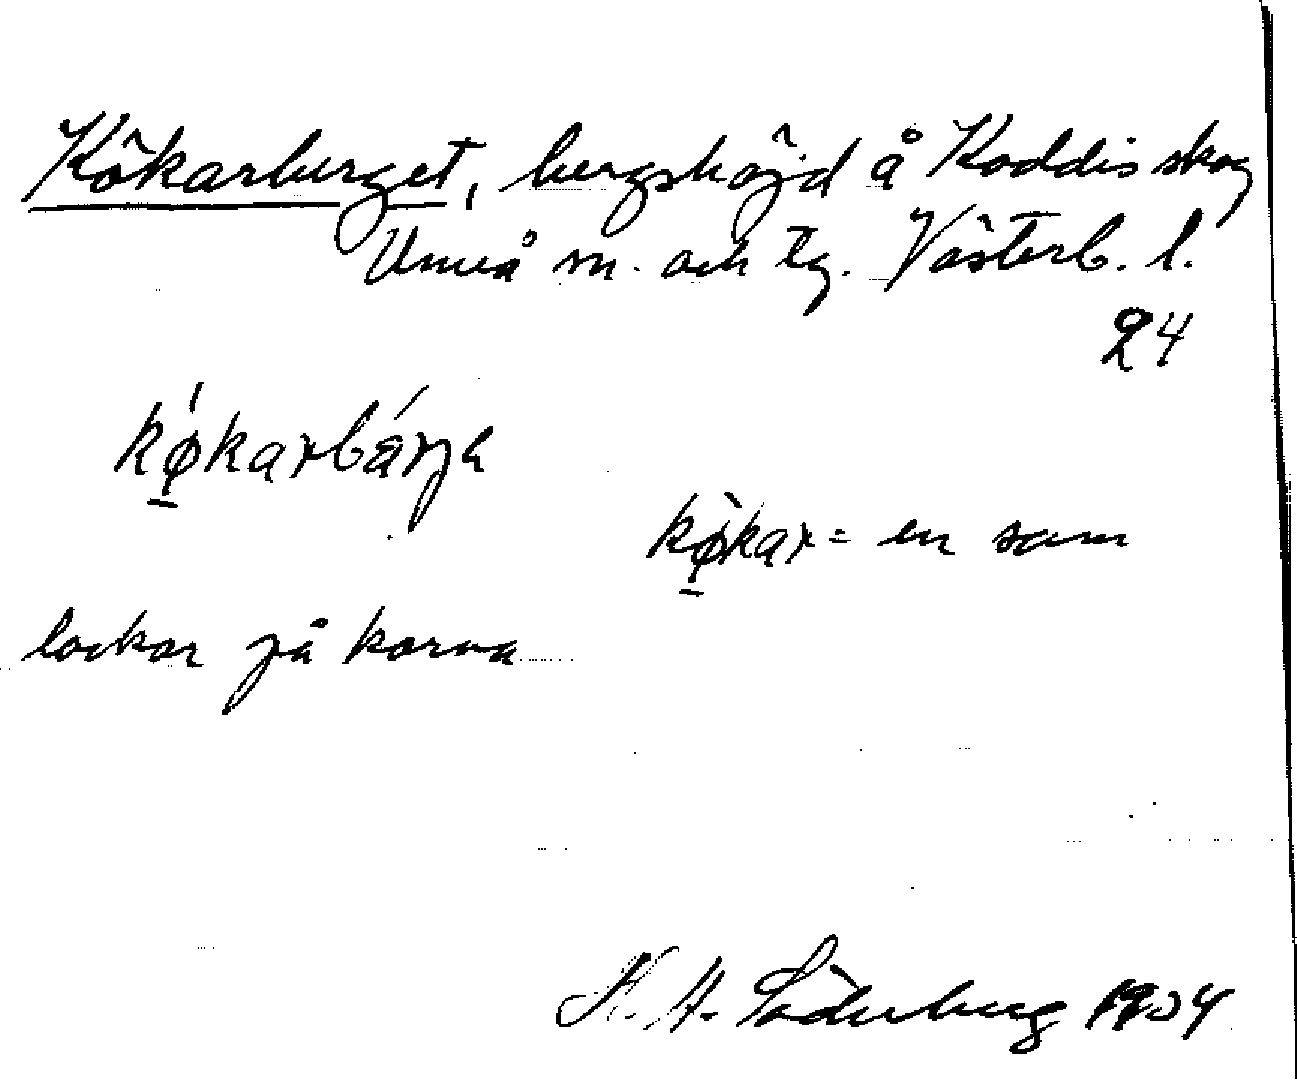 Kökarberget, bergshöjd å Koddis skog
Umeå sn. och tg. Västerb. l.
24
kǿ̱karbárjɐ
kø̱̀kar = en som
lockar på korna
K. A. Söderberg 1934